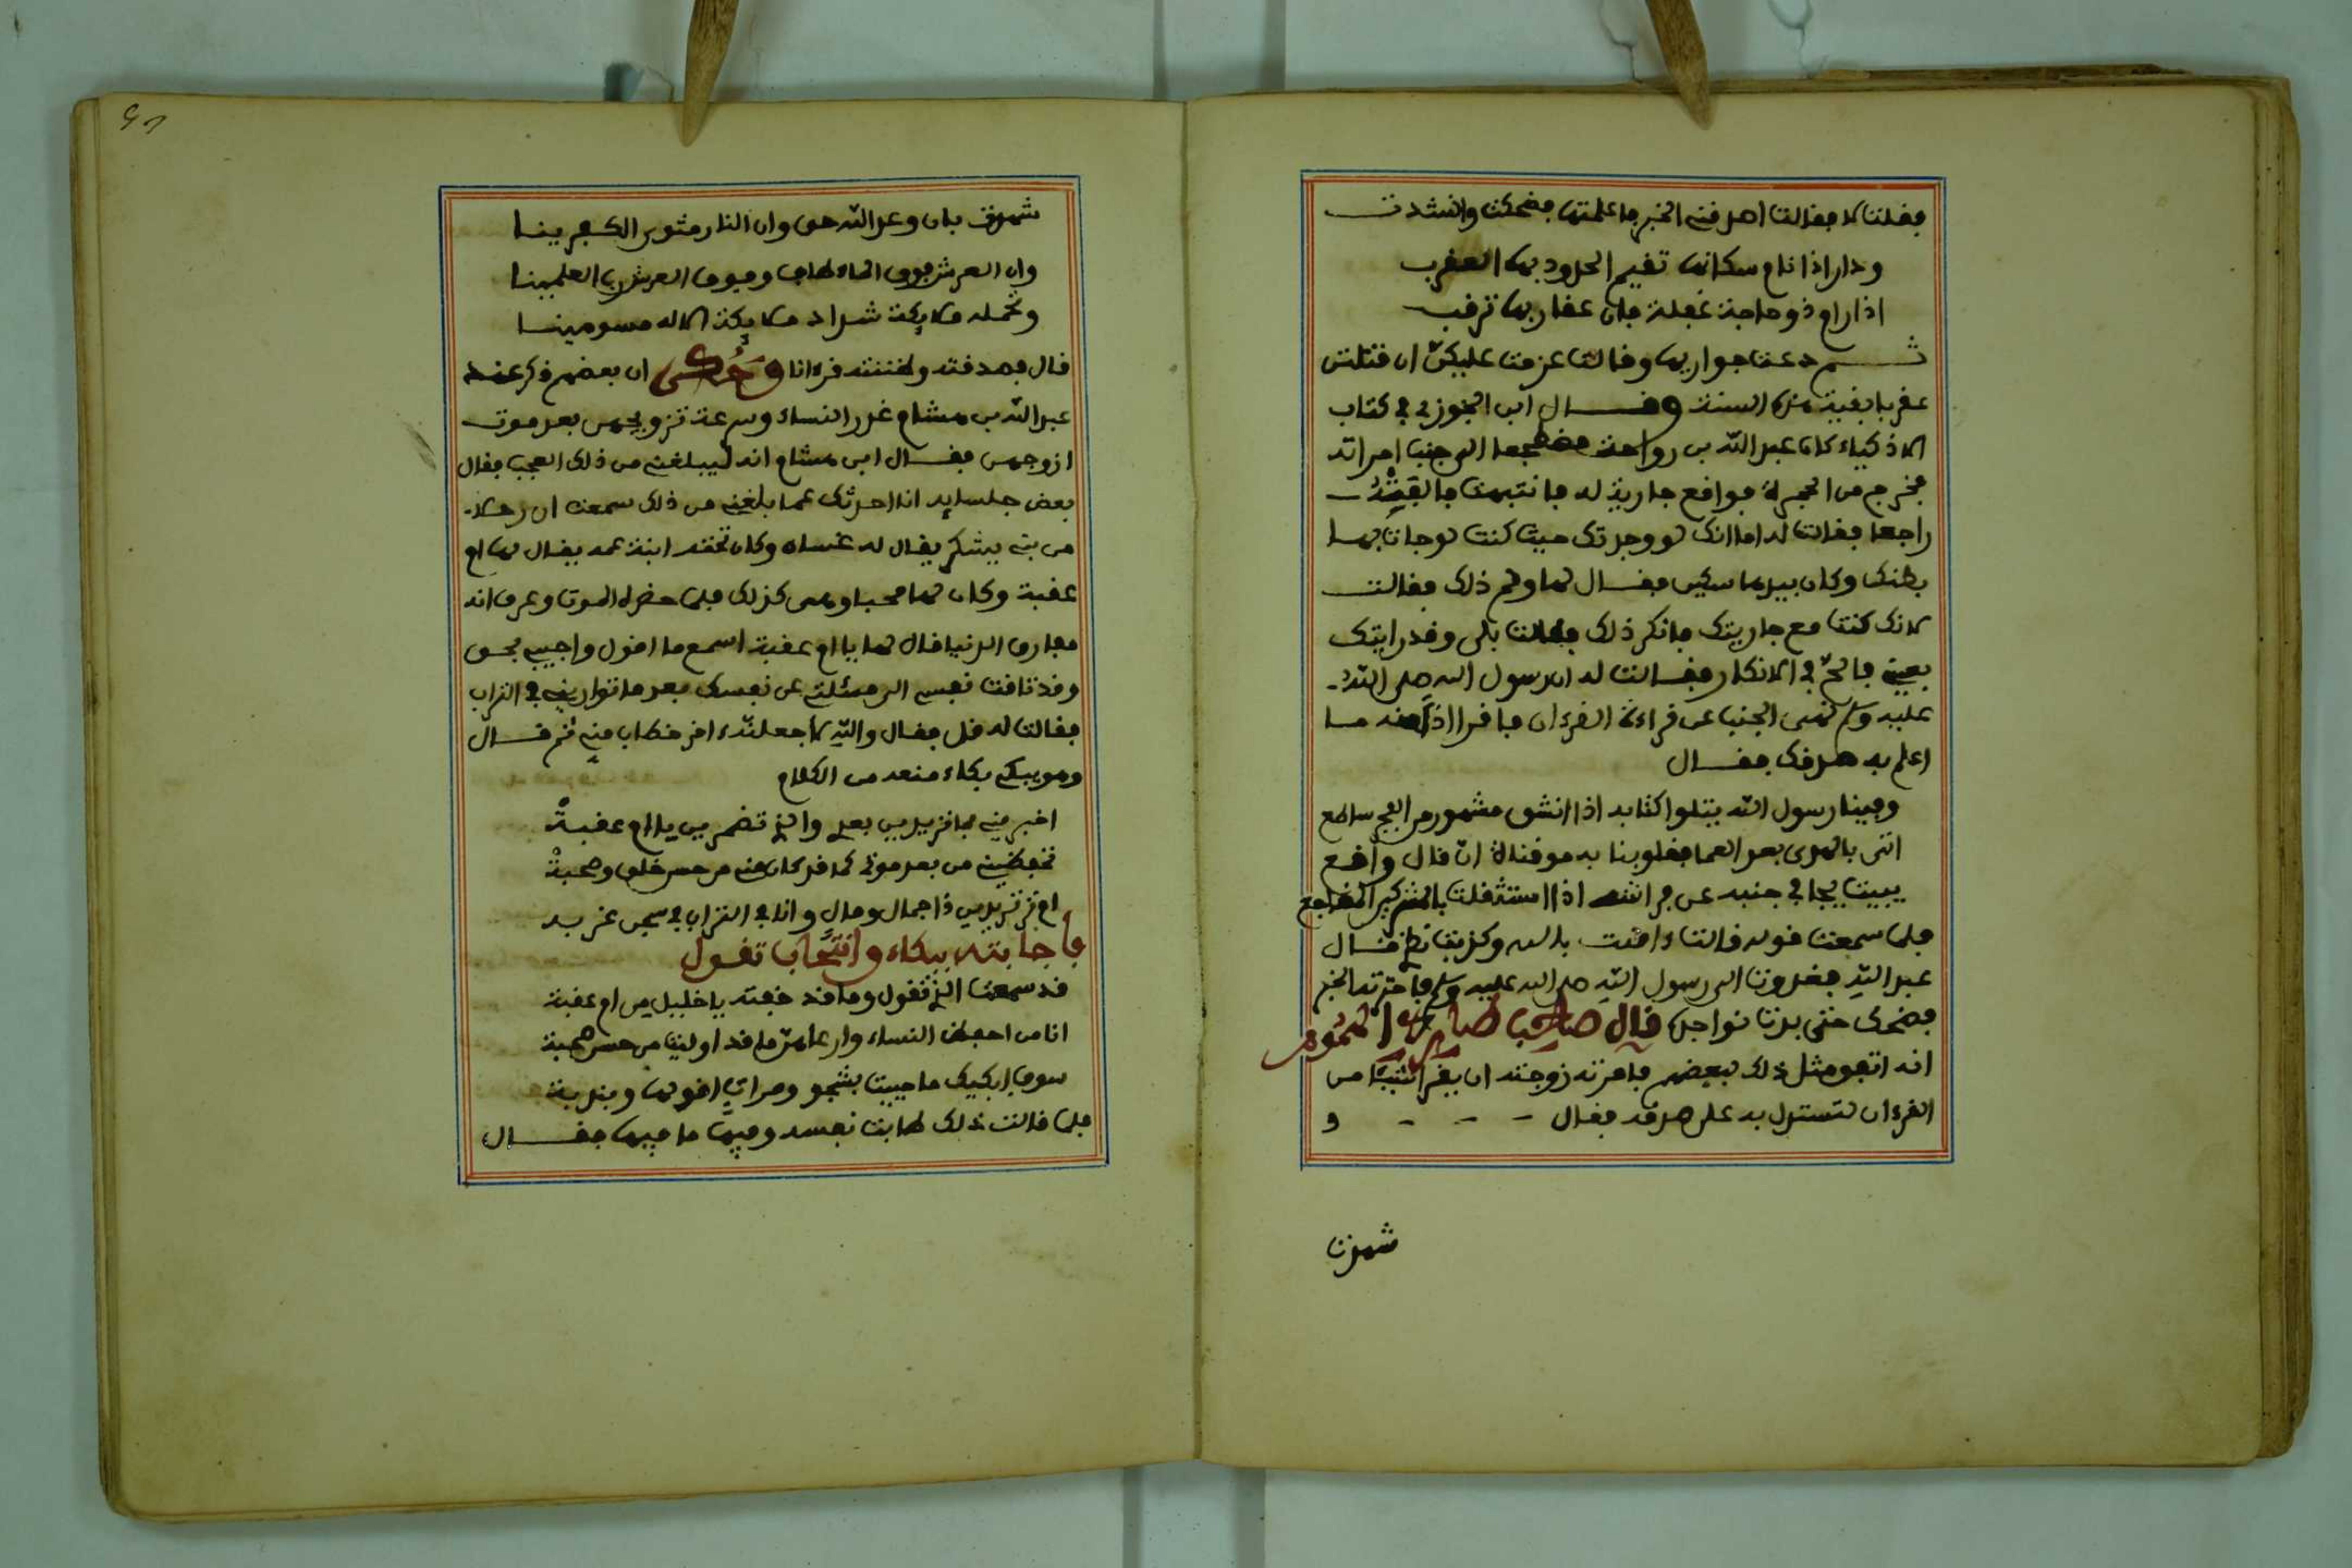 فقلت لا فقالت اصدقني الخبر فاعلمتها فضحكت وانشدت
ودار اذا نام سكانها تقيم الحدود بها العقرب
اذا رام ذو حاجة غفلة فان عقاربها ترقب
ثم دعت جواريها وقالت عزمت عليكن ان قتلتن
عقربا بقية هذه السنة وقال ابن الجوزي في كتاب
الاذكياء كان عبد الله بن رواحة مضطجعا الى جنب امراته
فخرج من الحجرة فواقع جارية له فانتبهت فالقيته
راجعا فقالت له اما انك لو وجدتك حيث كنت لوجات بها
بطنك وكان بيدها سكين فقال لها ولم ذلك فقالت
لانك كنت مع جاريتك فانكر ذلك فقالت بلى وقد رايتك
بعيني فالح في الانكار فقالت له ان رسول الله صلى الله
عليه وسلم نهى الجنب عن قراءة القرءان فاقرا اذا منه ما
اعلم به صدقك فقال
وفينا رسول الله يتلوا كتابه اذا انشق مشهور من الفجر ساطع
اتى بالهدى بعد العما فقلوبنا به موقناة ان ما قال واقع
يبيت يجافي جنبه عن فراشه اذا استثقلت بالمشركين المضاجع
فلما سمعت قوله قالت ءامنت بالله وكذبت نظري قال
عبد الله فغدوت الى رسول الله صلى الله عليه وسلم فاخبرته الخبر
فضحك حتى بدت نواجذه قال صاحب طارد الهموم
انه اتفق مثل ذلك لبعضهم فامرته زوجته ان يقرا شيئا من
القرءان لتستدل به على صدقه فقال و
شهدت
شهدت بان وعد الله حق وان النار مثوى الكفرينا
وان العرش فوق الماء طاف وفوق العرش رب العلمينا
وتحمله ملايكة شداد ملايكة الاله مسومينا
قال فصدقته وظننته قرءانا وحكى ان بعضهم ذكر عند
عبد الله بن هشام غدر النساء وسرعة تزويجهن بعد موت
ازوجهن فقال ابن هشام انه ليبلغني من ذلك العجب فقال
بعض جلسايه انا احدثك عما بلغني من ذلك سمعت ان رجلا
من بني يشكر يقال له غسان وكان تحته ابنة عمه يقال لها ام
عقبة وكان لها محبا وهي كذلك فلما حضره الموت وعرف انه
مفارق الدنيا قال لها يا ام عقبة اسمع ما اقول واجيبي بحق
وقد تاقت نفسي الى مسئلتك عن نفسك بعد ما تواريني في التراب
فقالت له قل فقال والله لا جعلته اخر خطاب مني ثم قال
وهو يبكي بكاء منعه من الكلام
اخبريني بما تريدين بعدي والذي تضمرين يا ام عقبة
تحفظيني من بعد موتي لما قد كان مني من حسن خلق وصحبة
ام تريدين ذا جمال ومال وانا في التراب في سجن غربة
فاجابته ببكاء وانتحاب تقول
قد سمعت الذي تقول وما قد خفته يا خليل من ام عقبة
انا من احفظ النساء وارعاهن ما قد اوليت من حسن صحبة
سوف ابكيك ما حييت بشجو ومراث اقولها وبندبة
فلما قالت ذلك طابت نفسه وفيها ما فيها فقال